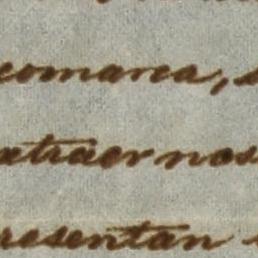 comarca,
xtraer nos
resentan